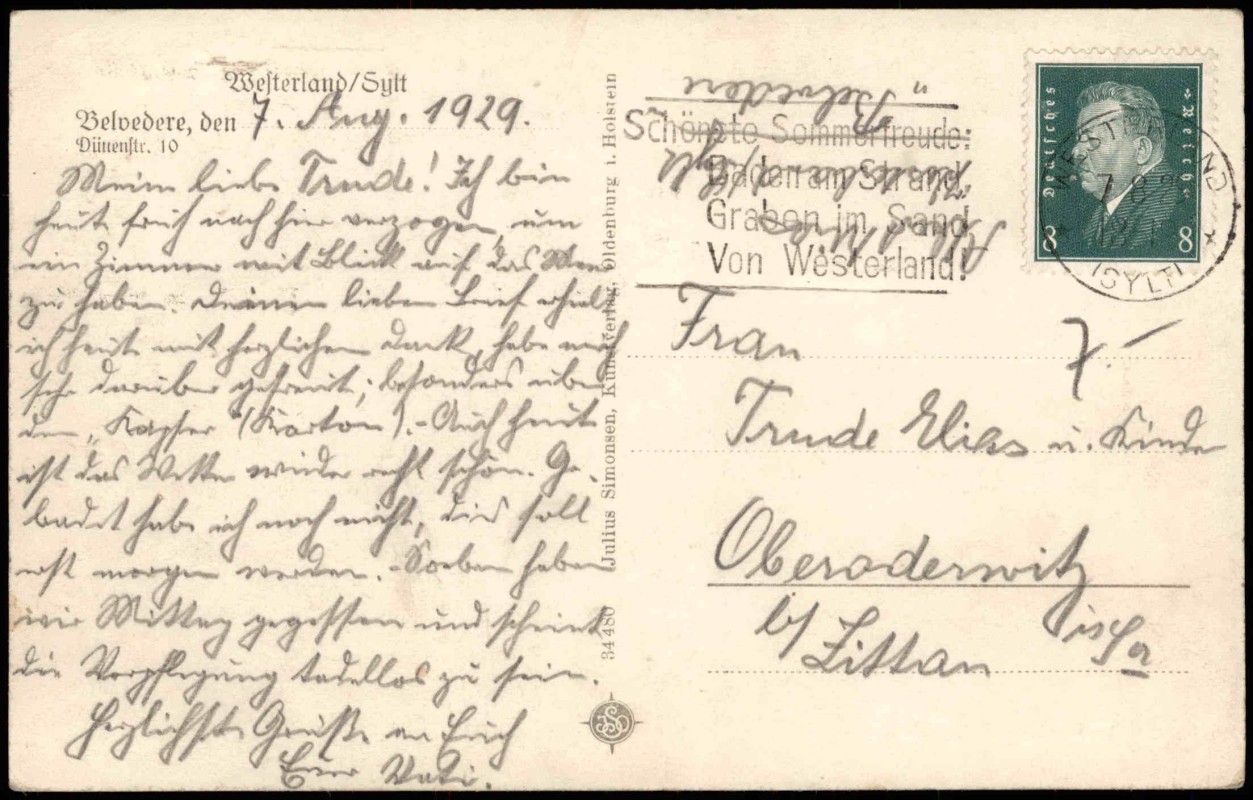 Westerland/Sylt
Belvedere, den 7. Aug. 1929.
Dünenstr. 10
Meine liebe Trude! Ich bin
heute früh nach hier verzogen, um
ein Zimmer mit Blick auf das Meer
zu haben. Deinen lieben Brief erhielt
ich heute mit herzlichem Dank, habe mich
sehr darüber gefreut, besonders über
den „Kasper" (Karton). - Auch heute
ist das Wetter wieder recht schön. Ge-
badet habe ich noch nicht, dies soll
erst morgen werden. - Soeben haben
wir Mittag gegessen und scheint
die Verpflegung tadellos zu sein.
Herzlichste Grüße an Erich
Euer Vati.
34480 Julius Simonsen, Kunstverlag, Oldenburg i. Holstein
Belvedere"
Westerland/Sylt
Schönste Sommerfreude:
Baden am Strand,
Graben im Sand
Von Westerland!
Deutsches Reich
8 8
WESTERLAND
(SYLT)
7.-
Frau
Trude Elias u. Kinder
Oberoderwitz
b/ Zittau i/Sa